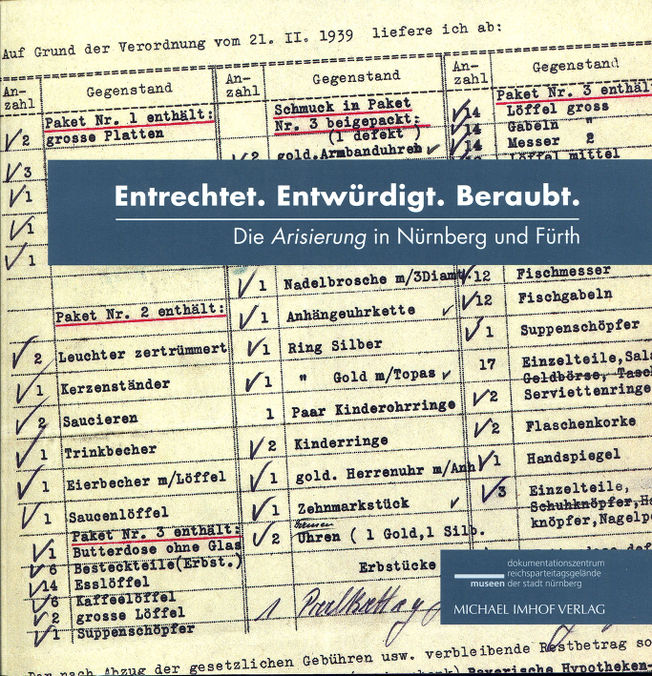 Auf Grund der Verordnung vom 21. II. 1939 liefere ich ab:
An-zahl Gegenstand An-zahl Gegenstand An-zahl Gegenstand
Paket Nr. 1 enthält:
2 grosse Platten
3
1
1
1
Paket Nr. 2 enthält:
2 Leuchter zertrümmert
1 Kerzenständer
2 Saucieren
1 Trinkbecher
1 Eierbecher m/Löffel
1 Saucenlöffel
Paket Nr. 3 enthält:
1 Butterdose ohne Glas
6 Besteckteile(Erbst.)
14 Esslöffel
6 Kaffeelöffel
2 grosse Löffel
1 Suppenschöpfer
Schmuck in Paket
Nr. 3 beigepackt:
(1 defekt )
2 gold.Armbanduhren
1 Nadelbrosche m/3Diamt.
1 Anhängeuhrkette
1 Ring Silber
1 " Gold m/Topas
1 Paar Kinderohrringe
2 Kinderringe
1 gold. Herrenuhr m/Anh
1 Zehnmarkstück
2 Uhren ( 1 Gold,1 Silb.
Erbstücke
1
Paket Nr. 3 enthält
14 Löffel gross
14 Gabeln "
14 Messer 2
Löffel mittel
12 Fischmesser
12 Fischgabeln
1 Suppenschöpfer
17 Einzelteile,Sala
Geldbörse, Tasch
2 Serviettenringe
2 Flaschenkorke
1 Handspiegel
3 Einzelteile,
Schuhknöpfer,
knöpfer,Nagelpo
Entrechtet. Entwürdigt. Beraubt.
Die Arisierung in Nürnberg und Fürth
dokumentationszentrum
reichsparteitagsgelände
museen der stadt nürnberg
MICHAEL IMHOF VERLAG
Der nach Abzug der gesetzlichen Gebühren usw. verbleibende Restbetrag so
Bayerische Hypotheken-